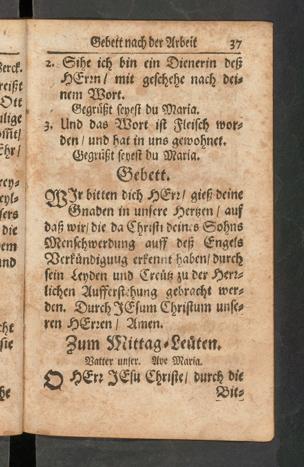 Gebett nach der Arbeit 37
2. Sihe ich bin ein Dienerin deß
HErrn / mit geschehe nach dei-
nem Wort.
Gegrüßt seyest du Maria.
3. Und das Wort ist Fleisch wor-
den / und hat in uns gewohnet.
Gegrüßt seyest du Maria.
Gebett.
WIr bitten dich HErr / gieß deine
Gnaden in unsere Hertzen / auf
daß wir / die da Christi deines Sohns
Menschwerdung auff deß Engels
Verkündiguug erkennt haben / durch
sein Leyden und Creütz zu der Herr-
lichen Aufferstehung gebracht wer-
den. Durch JEsum Christum unse-
ren HErren / Amen.
Zum Mittag-Leüten.
Vatter unser. Ave Maria.
O HErr JEsu Christe / durch die
Bit-